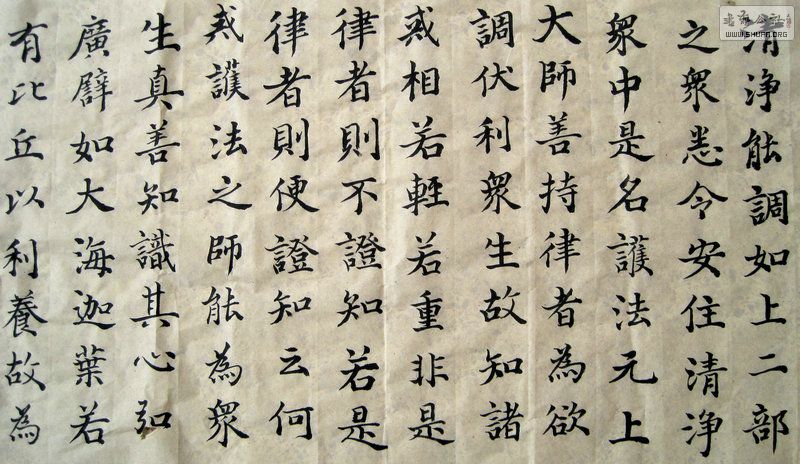 清淨能調如上二部
之衆悉令安住清淨
衆中是名護法元上
大師善持律者為欲
調伏利衆生故知諸
戒相若輕若重非是
律者則不證知若是
律者則便證知云何
戒護法之師能為衆
生真善知識其心弘
廣譬如大海迦葉若
有比丘以利養故為